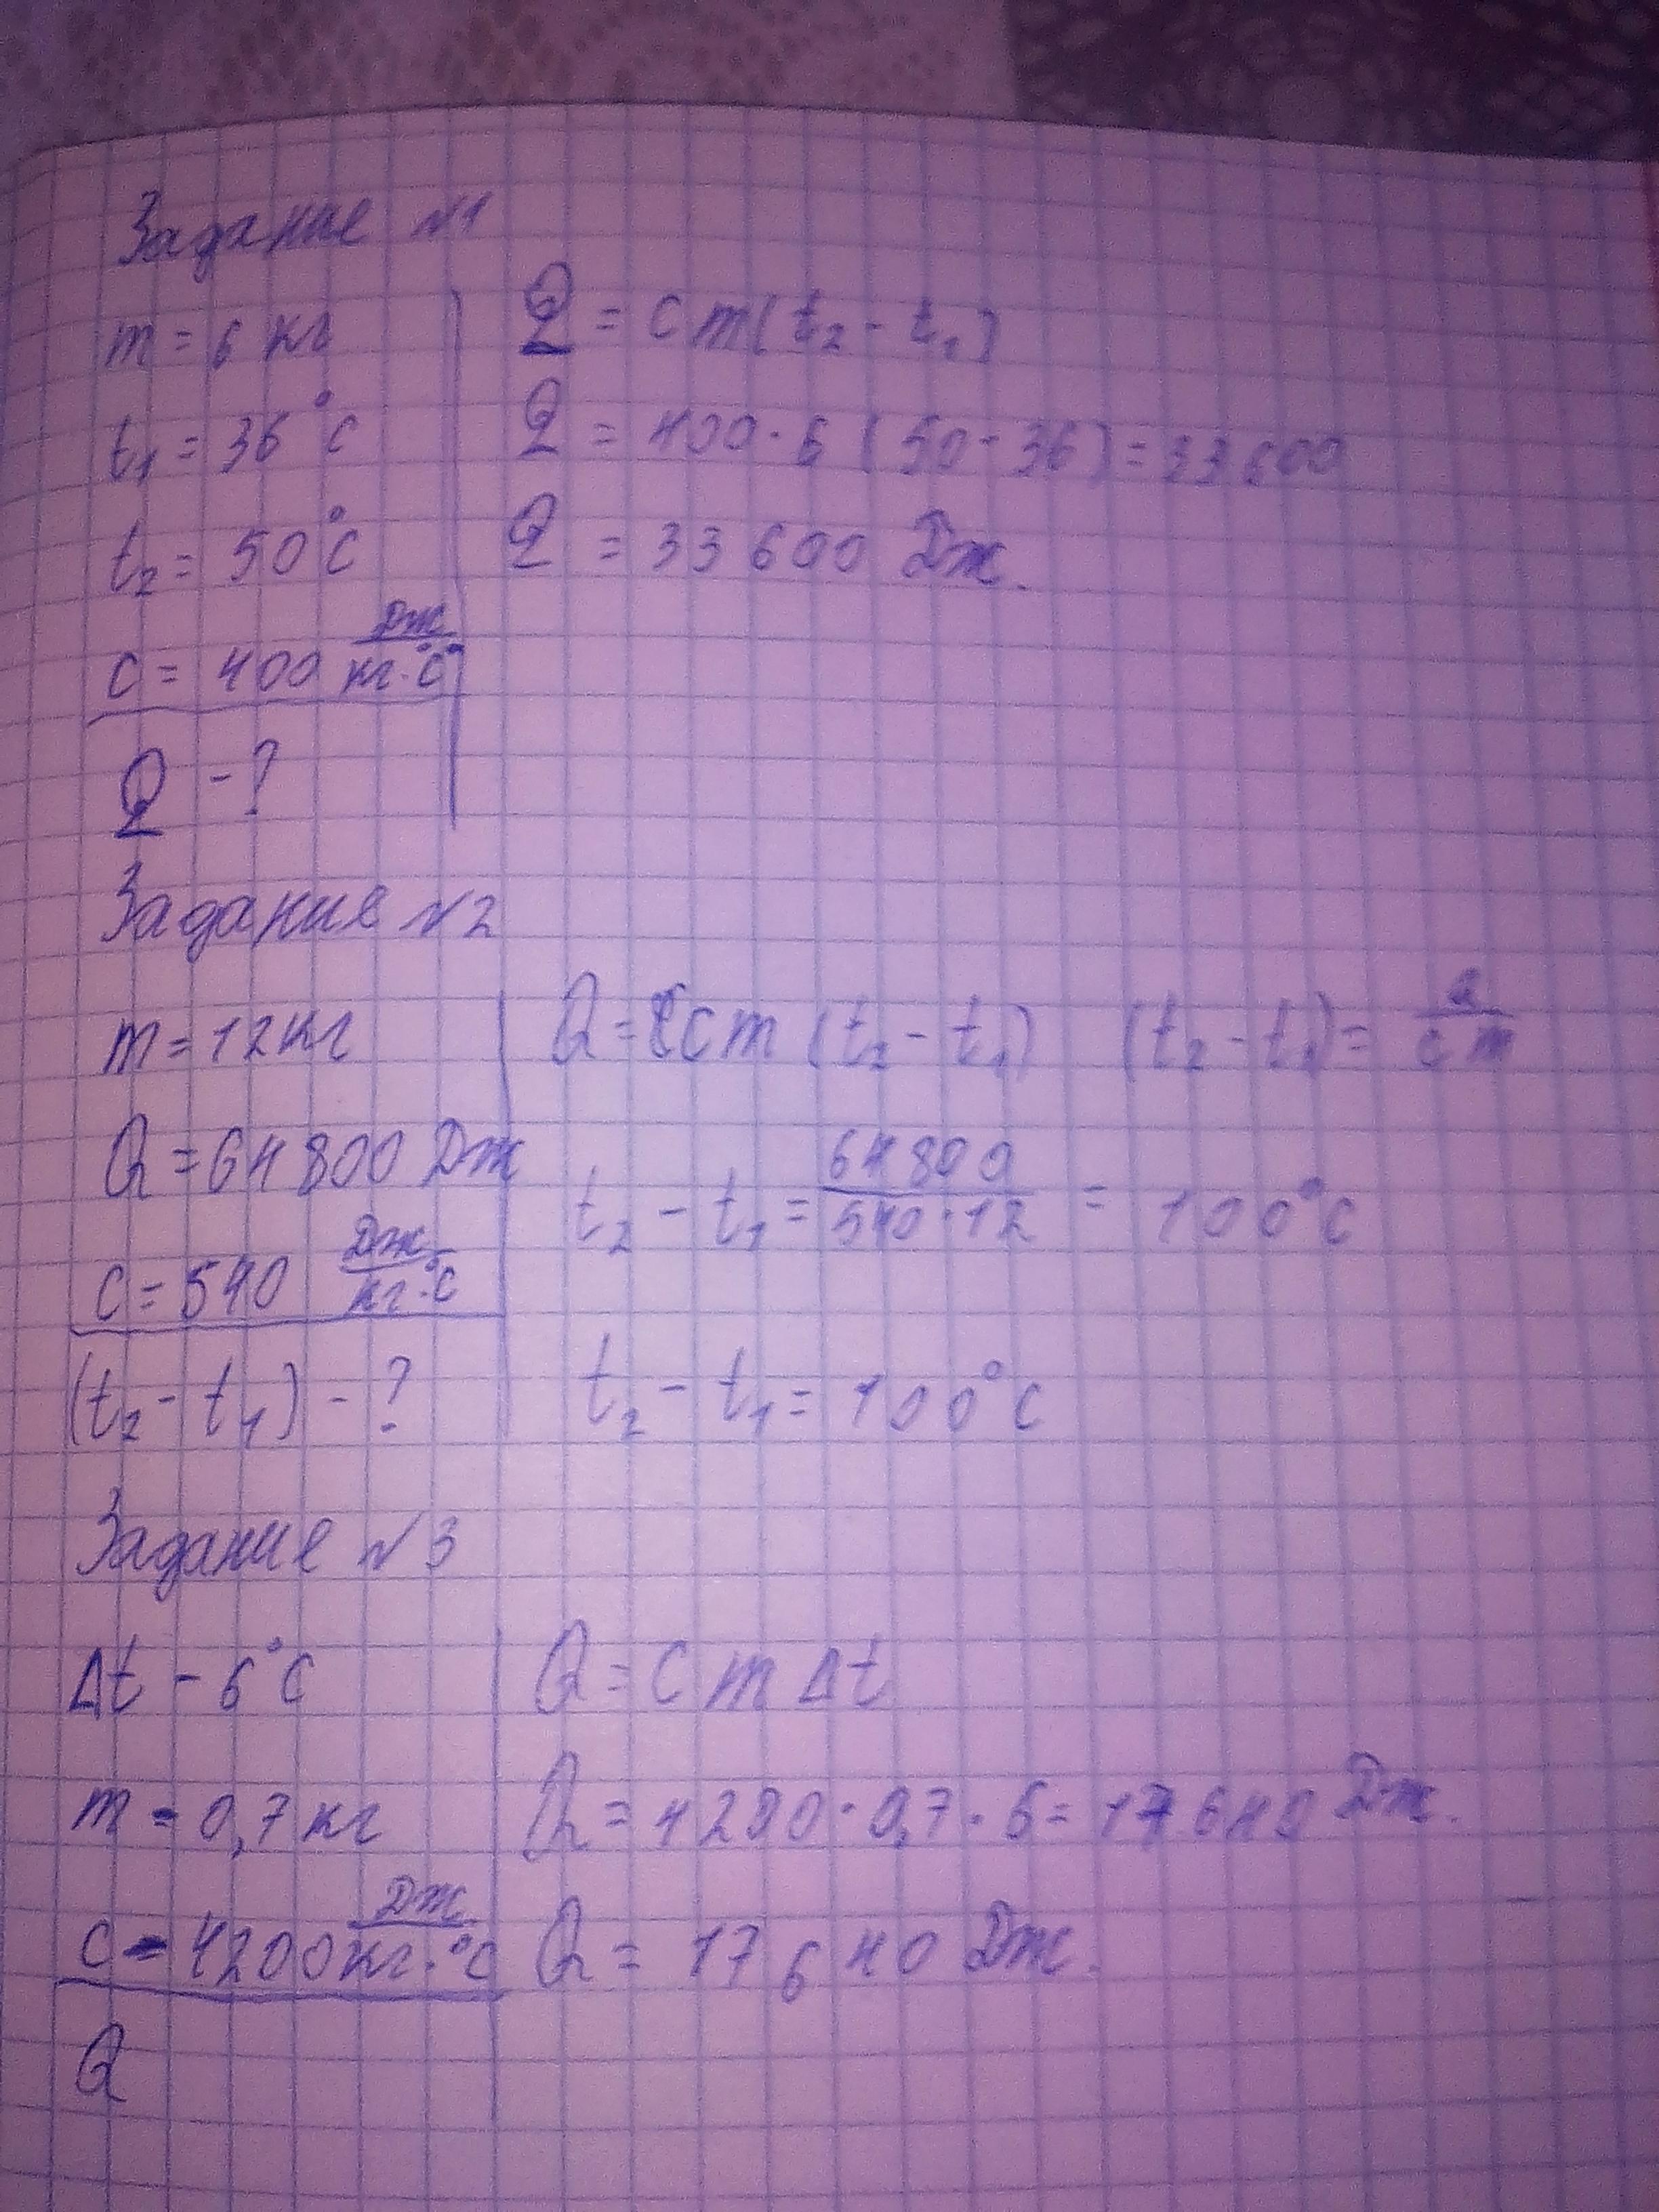 Задание №1
m = 6 кг
t₁ = 36°C
t₂ = 50°C
c = 400 Дж/кг·°C
Q - ?
Q = cm(t₂ - t₁)
Q = 400·6(50-36)=33600
Q = 33 600 Дж.
Задание №2
m = 12кг
Q = 64 800 Дж
c = 540 Дж/кг·°C
(t₂ - t₁) - ?
Q = cm(t₂ - t₁) (t₂ - t₁) = Q/cm
t₂ - t₁ = 64 800/540·12 = 100°C
t₂ - t₁ = 100°C
Задание №3
Δt - 6°C
m = 0,7 кг
c - 4200 Дж/кг·°C
Q
Q = cmΔt
Q = 4200·0,7·6 = 17 640 Дж.
Q = 17 640 Дж.